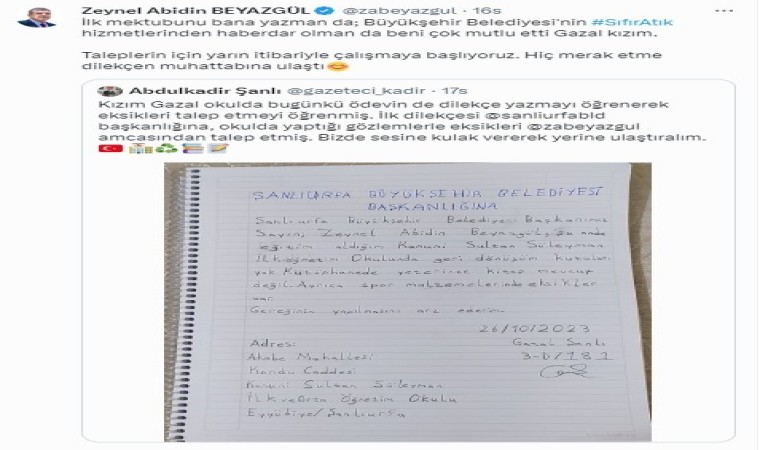 Zeynel Abidin BEYAZGÜL @zabeyazgul · 16s
İlk mektubunu bana yazman da; Büyükşehir Belediyesi'nin #SıfırAtık
hizmetlerinden haberdar olman da beni çok mutlu etti Gazal kızım.
Taleplerin için yarın itibariyle çalışmaya başlıyoruz. Hiç merak etme
dilekçen muhattabına ulaştı😊
Abdulkadir Şanlı @gazeteci_kadir · 17s
Kızım Gazal okulda bugünkü ödevin de dilekçe yazmayı öğrenerek
eksikleri talep etmeyi öğrenmiş. İlk dilekçesi @sanliurfabld
başkanlığına, okulda yaptığı gözlemlerle eksikleri @zabeyazgul
amcasından talep etmiş. Bizde sesine kulak vererek yerine ulaştıralım.
🇹🇷 🏫♻️📚📝
ŞANLIURFA BÜYÜKŞEHİR BELEDİYESİ
BAŞKANLIĞINA
Şanlıurfa Büyükşehir Belediye Başkanımız
Sayın, Zeynel Abidin Beyazgül, Şu anda
eğitim aldığım Kanuni Sultan Süleyman
İlköğretim Okulunda geri dönüşüm kutuları
yok Kütüphanede yeterince kitap mevcut
değil. Ayrıca spor malzemelerinde eksikler
var.
Gereğinin yapılmasını arz ederim.
26/10/2023
Adres: Gazal Şanlı
Akabe Mahallesi 3-D/181
Caddesi
Kanuni Sultan Süleyman
İlk ve Orta Öğretim Okulu
Eyyübiye/Şanlıurfa